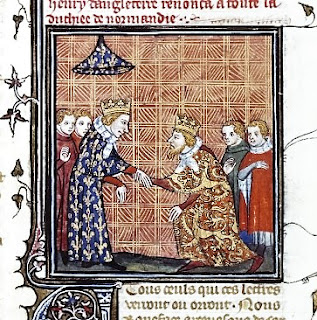 henry dangleterre renonca a toute la
duchee de normandie.
Tous ceuls qui ces lettres
verront ou orront. Nous